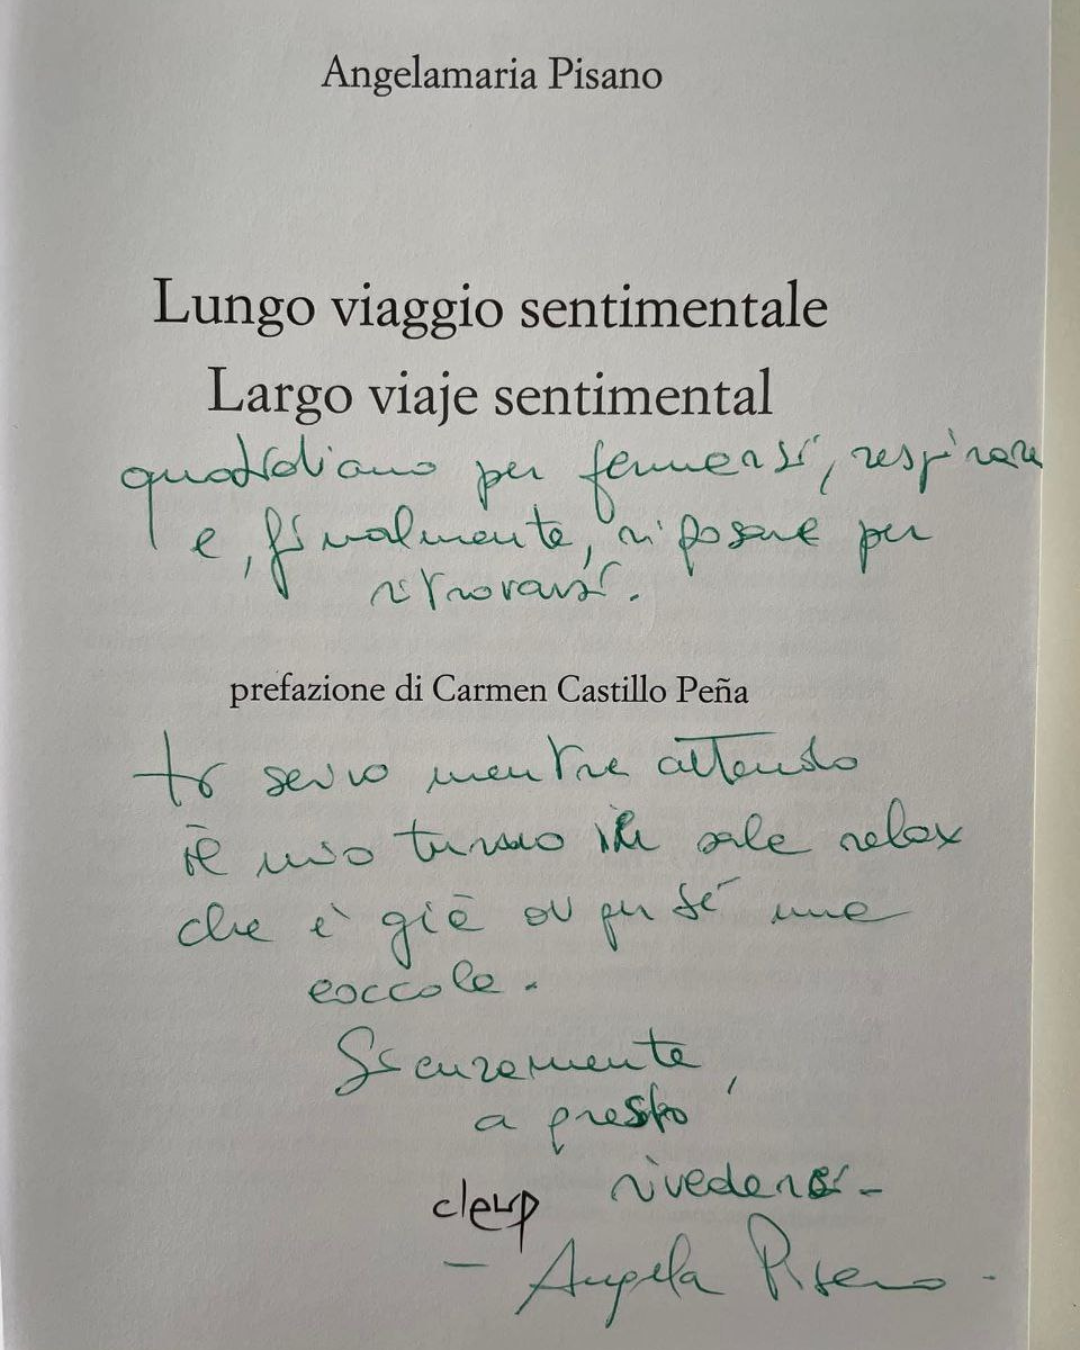 Angelamaria Pisano
Lungo viaggio sentimentale
Largo viaje sentimental
quotidiano per fermarsi, respirare
e, finalmente, riposare per
ritrovarsi.
prefazione di Carmen Castillo Peña
scrivo mentre attendo
il mio turno in sala relax
che è già di per sé una
coccola.
Sicuramente,
a presto
rivederci –
cleup
– Angela Pisano -